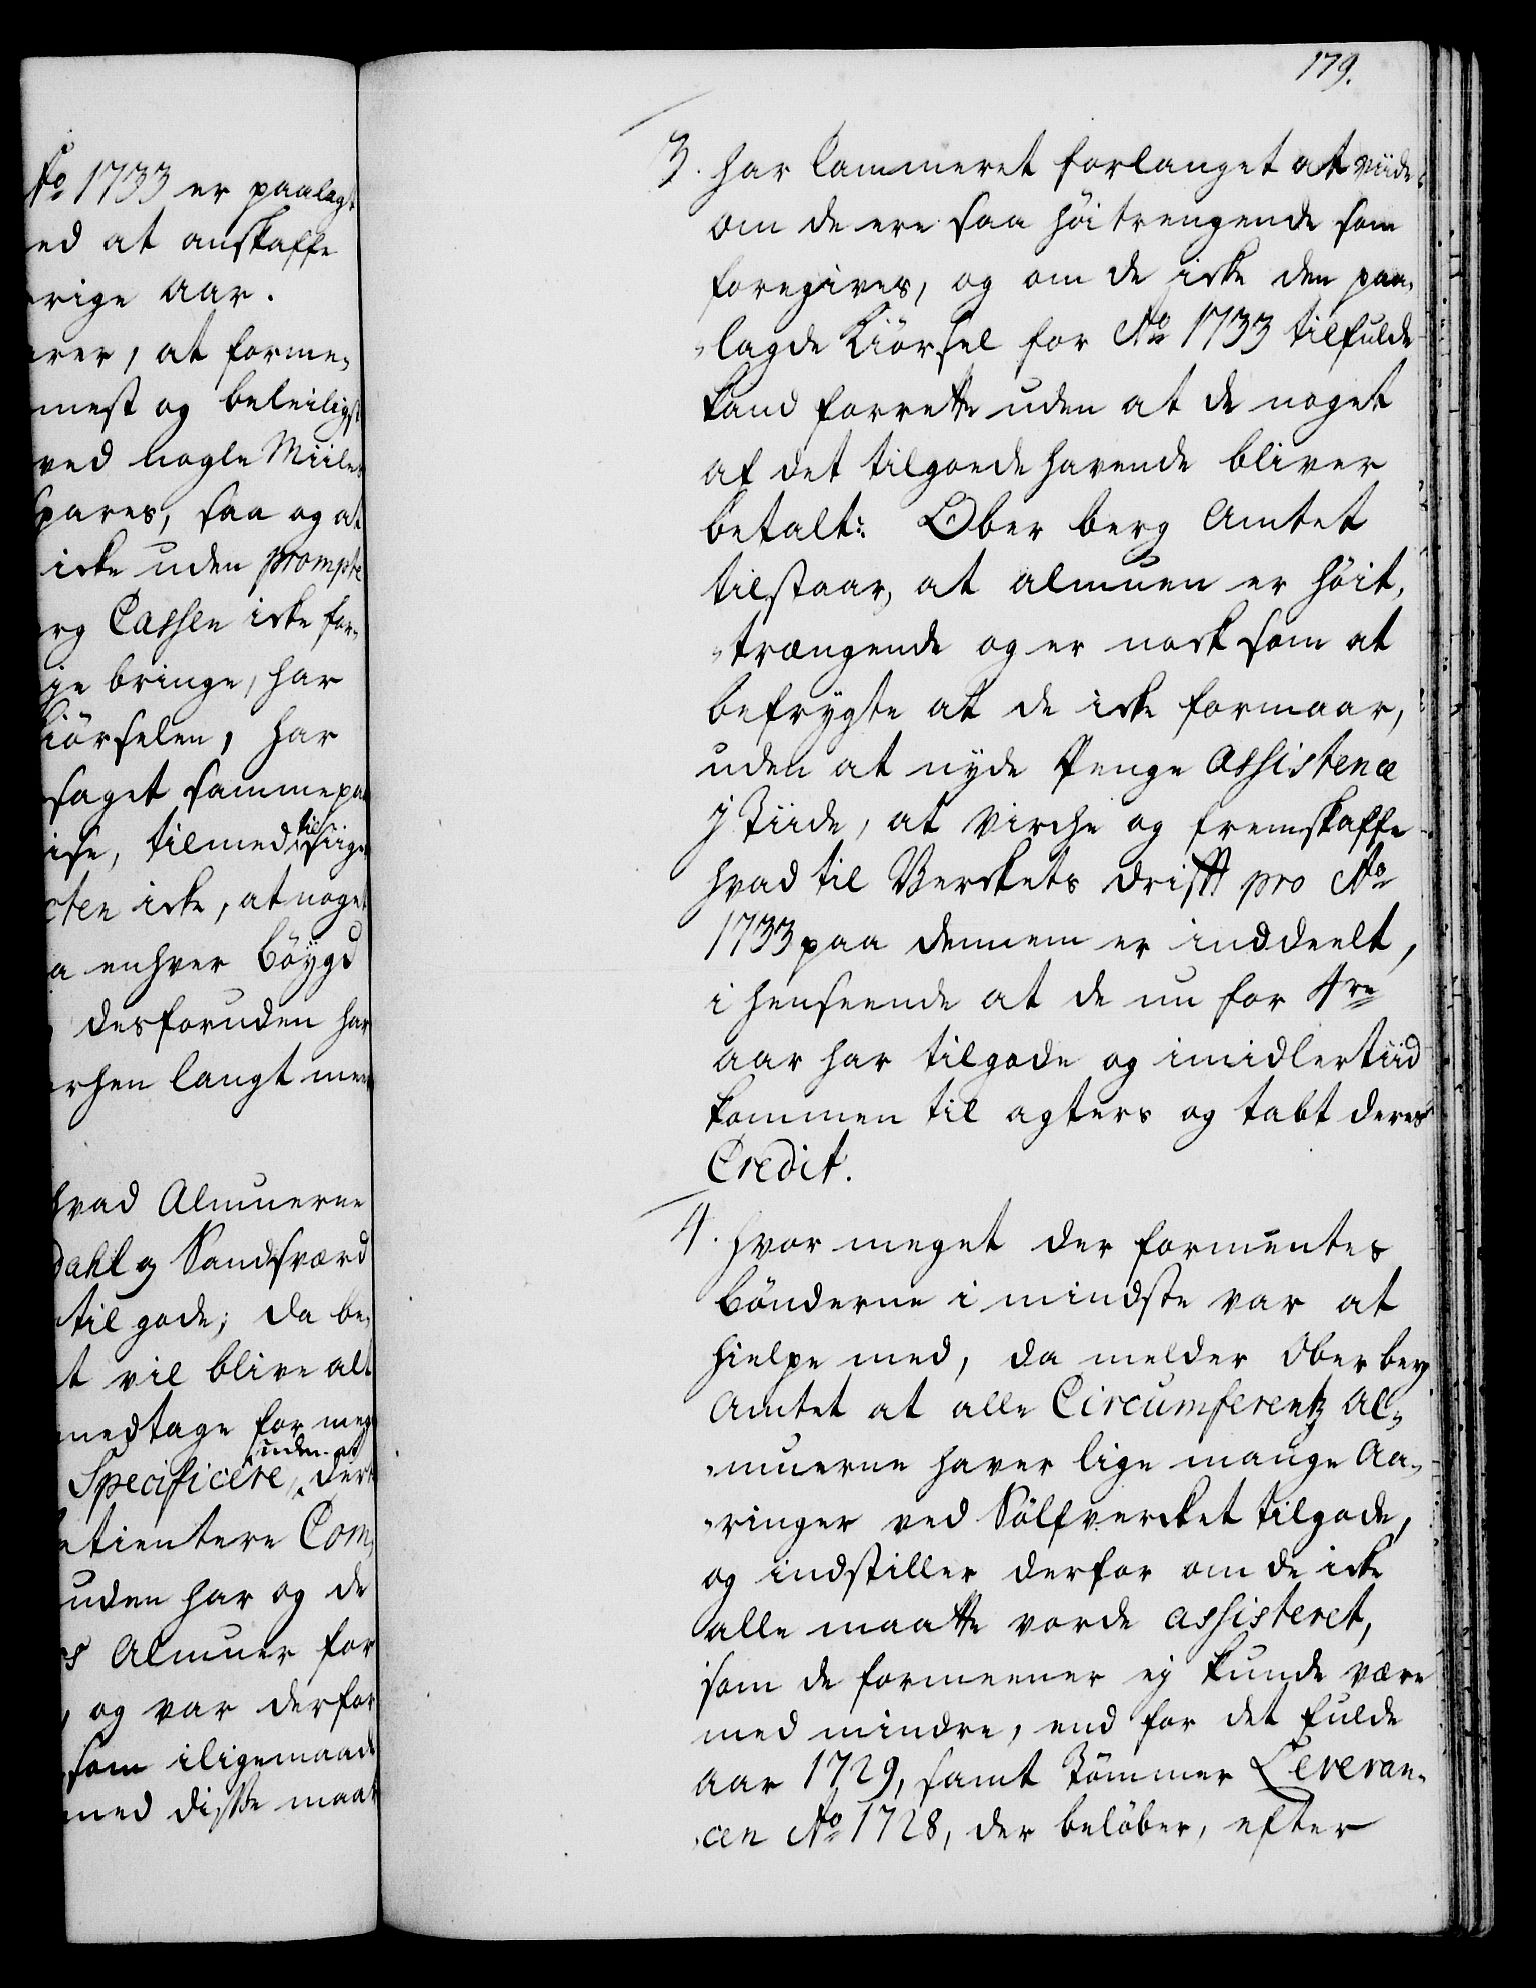 Ao 1733 er paalagt
ed at anskaffe
rige aar.
rer, at forme-
mest og beleiligst
ved nogle Miiler
spares, saa og at
icke uden prompte
rg Cassen icke for-
ge bringe, har
iørselen, har
saget sammepaa
ise, tilmed til siiger
cten icke, at noget
a enhver bøygd
desforuden har
rhen langt meer
hvad Almuerne
dahl og Sandsværd
til gode; da be-
t vil blive alt
medtage for meget
Specificere, uden at der
etientere Com-
uden har og de
s Almuer for
, og var derfor
som iligemaade
med disse maat
179.
3. har Cammeret forlanget at viide
om de ere saa høitrengende som
foregives, og om de icke den paa-
-lagde Kiørsel for Ao 1733 tilfulde
kand forrette uden at de noget
af det tilgoede havende bliver
betalt: Ober berg Amtet
tilstaar, at almuen er høit-
-trængende og er nock som at
befrygte at de icke formaar,
uden at nyde Penge Assistence
J Tiide, at virche og fremskaffe
hvad til Verckets drifft pro Ao
1733 paa dennem er inddeelt,
i henseende at de nu for 4re
aar har tilgode og imidlertiid
kommen til agters og tabt deres
Credit.
4. hvor meget der formeentes
bønderne i mindste var at
hielpe med, da melder Ober berg
Amtet at alle Circumferentz Al-
-muerne haver lige mange Aa-
-ringer ved Sølfvercket tilgode,
og indstiller derfor om de icke
alle maatte vorde assisteret,
som de formeener ej kunde være
med mindre, end for det fulde
aar 1729, samt Tømmer Leveran-
-cen Ao 1728, der beløber, efter